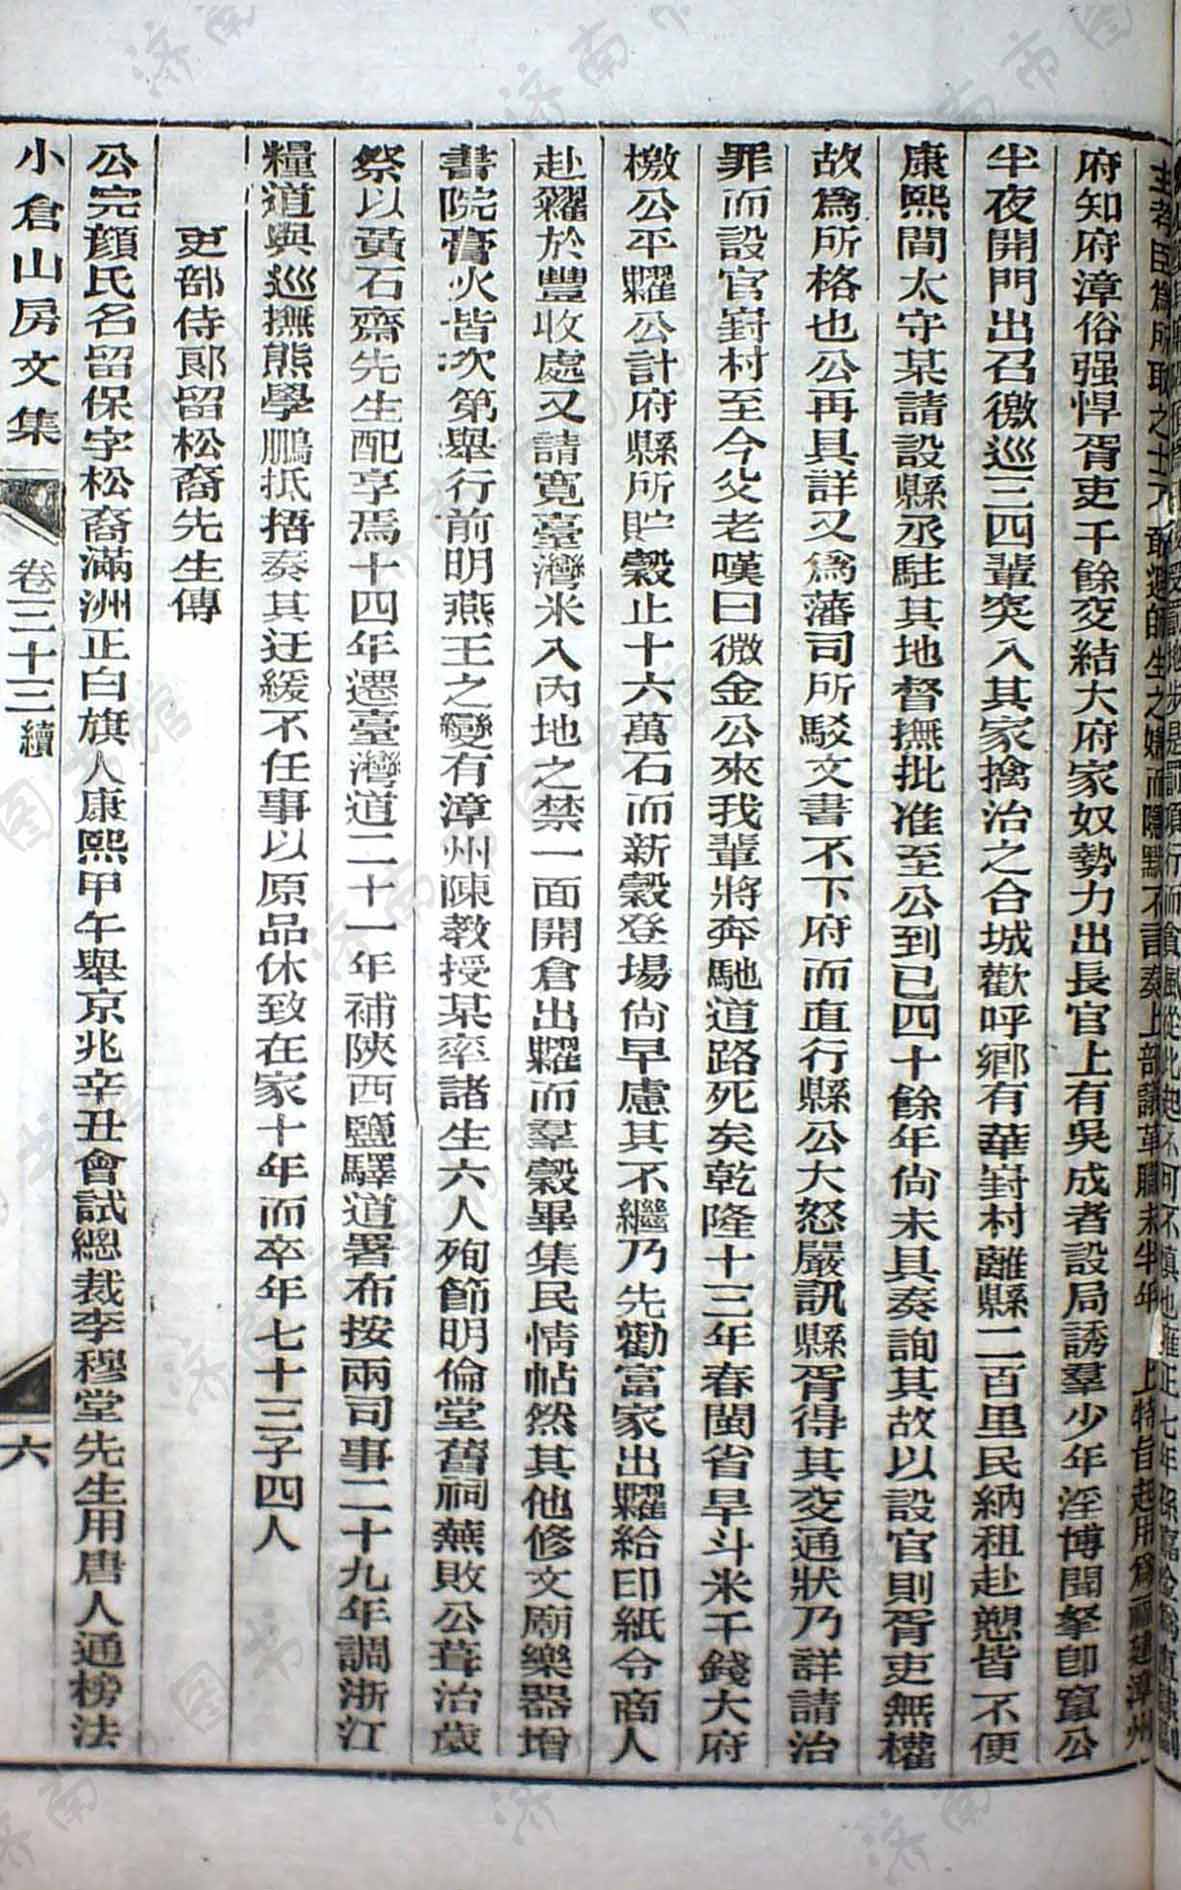 主考臣爲所取之士不敢避師生之嫌而隱默不言奏上部議革職未半年 上特旨起用爲福建漳州
府知府漳俗强悍胥吏千餘交結大府家奴勢力出長官上有吳成者設局誘羣少年淫博聞拏卽竄公
半夜開門出召徼巡三四輩突入其家擒治之合城歡呼鄉有華封村離縣二百里民納租赴愬皆不便
康熙間太守某請設縣丞駐其地督撫批准至公到已四十餘年尙未具奏詢其故以設官則胥吏無權
故爲所格也公再具詳又爲藩司所駁文書不下府而直行縣公大怒嚴訊縣胥得其交通狀乃詳請治
罪而設官封村至今父老嘆曰微金公來我輩將奔馳道路死矣乾隆十三年春閩省旱斗米千錢大府
檄公平糶公計府縣所貯穀止十六萬石而新穀登場尙早慮其不繼乃先勸富家出糶給印紙令商人
赴糴於豐收處又請寬臺灣米入內地之禁一面開倉出糶而羣穀畢集民情帖然其他修文廟樂器增
書院膏火皆次第舉行前明燕王之變有漳州陳教授某率諸生六人殉節明倫堂舊祠蕪敗公葺治歲
祭以黃石齋先生配享焉十四年遷臺灣道二十一年補陝西鹽驛道署布按兩司事二十九年調浙江
糧道與巡撫熊學鵬抵捂奏其迂緩不任事以原品休致在家十年而卒年七十三子四人
吏部侍郞留松裔先生傳
公完顏氏名留保字松裔滿洲正白旗人康熙甲午舉京兆辛丑會試總裁李穆堂先生用唐人通榜法
小倉山房文集 卷三十三續 六